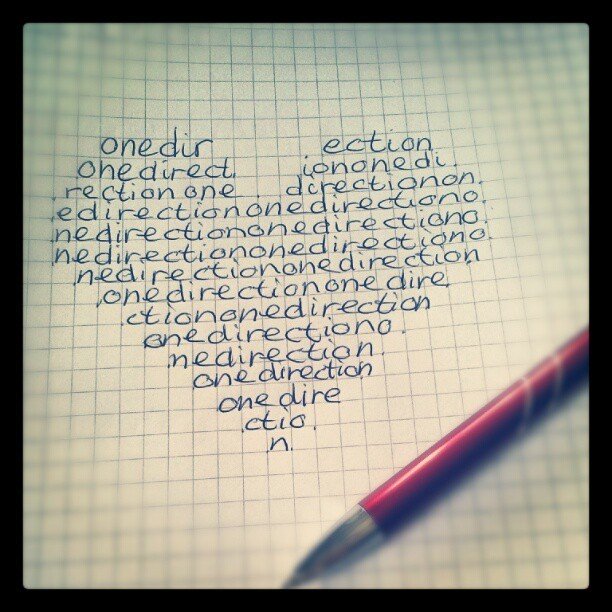 onedir ection
onedirect. iononedi.
.rectionone . directionon.
.edirectiononedirectiono.
.nedirectiononedirectiono.
.nedirectiononedirectiono.
.nedirectiononedirection
.onedirectiononedire.
.ctiononedirection
onedirectiono.
.nedirection.
onedirection
onedire
.ctio.
.n.